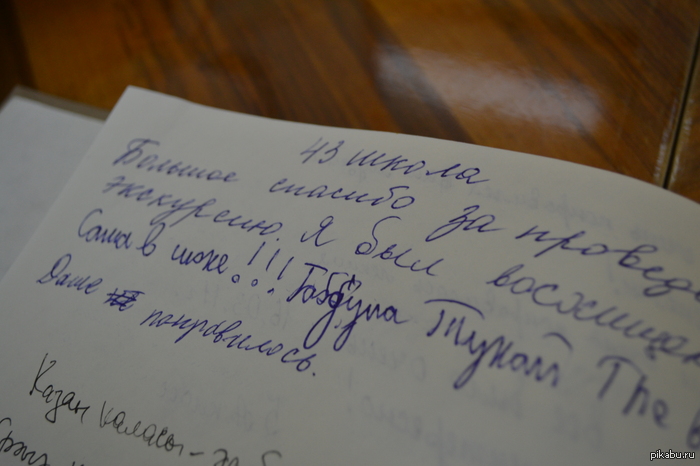 43 школа
Большое спасибо за проведе
экскурсию. Я был восхищен
Саша в шоке!!! Габдула Тукай The в
Даше понравилось.
Казан каласы - за
pikabu.ru